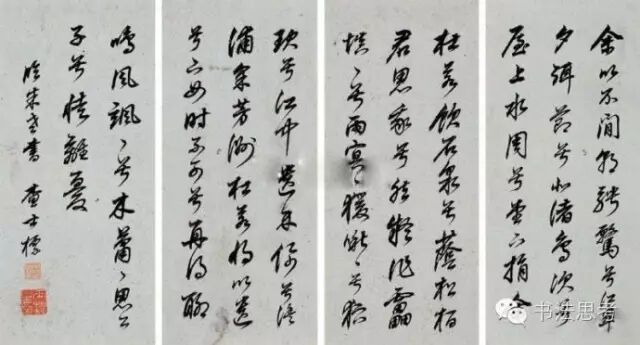 余以不閒朝騁騖兮江皋
夕弭節兮北渚鳥次兮
屋上水周兮堂下捐余
杜若飲石泉兮蔭松柏
君思我兮然疑作靁
填〻兮雨冥〻猨啾〻兮狖
玦兮江中遺余佩兮澧
浦采芳洲杜若將以遺
兮下女時不可兮再得聊
鳴風颯〻兮木蕭〻思公
子兮徒離憂
臨米老書 查士標
书法思考